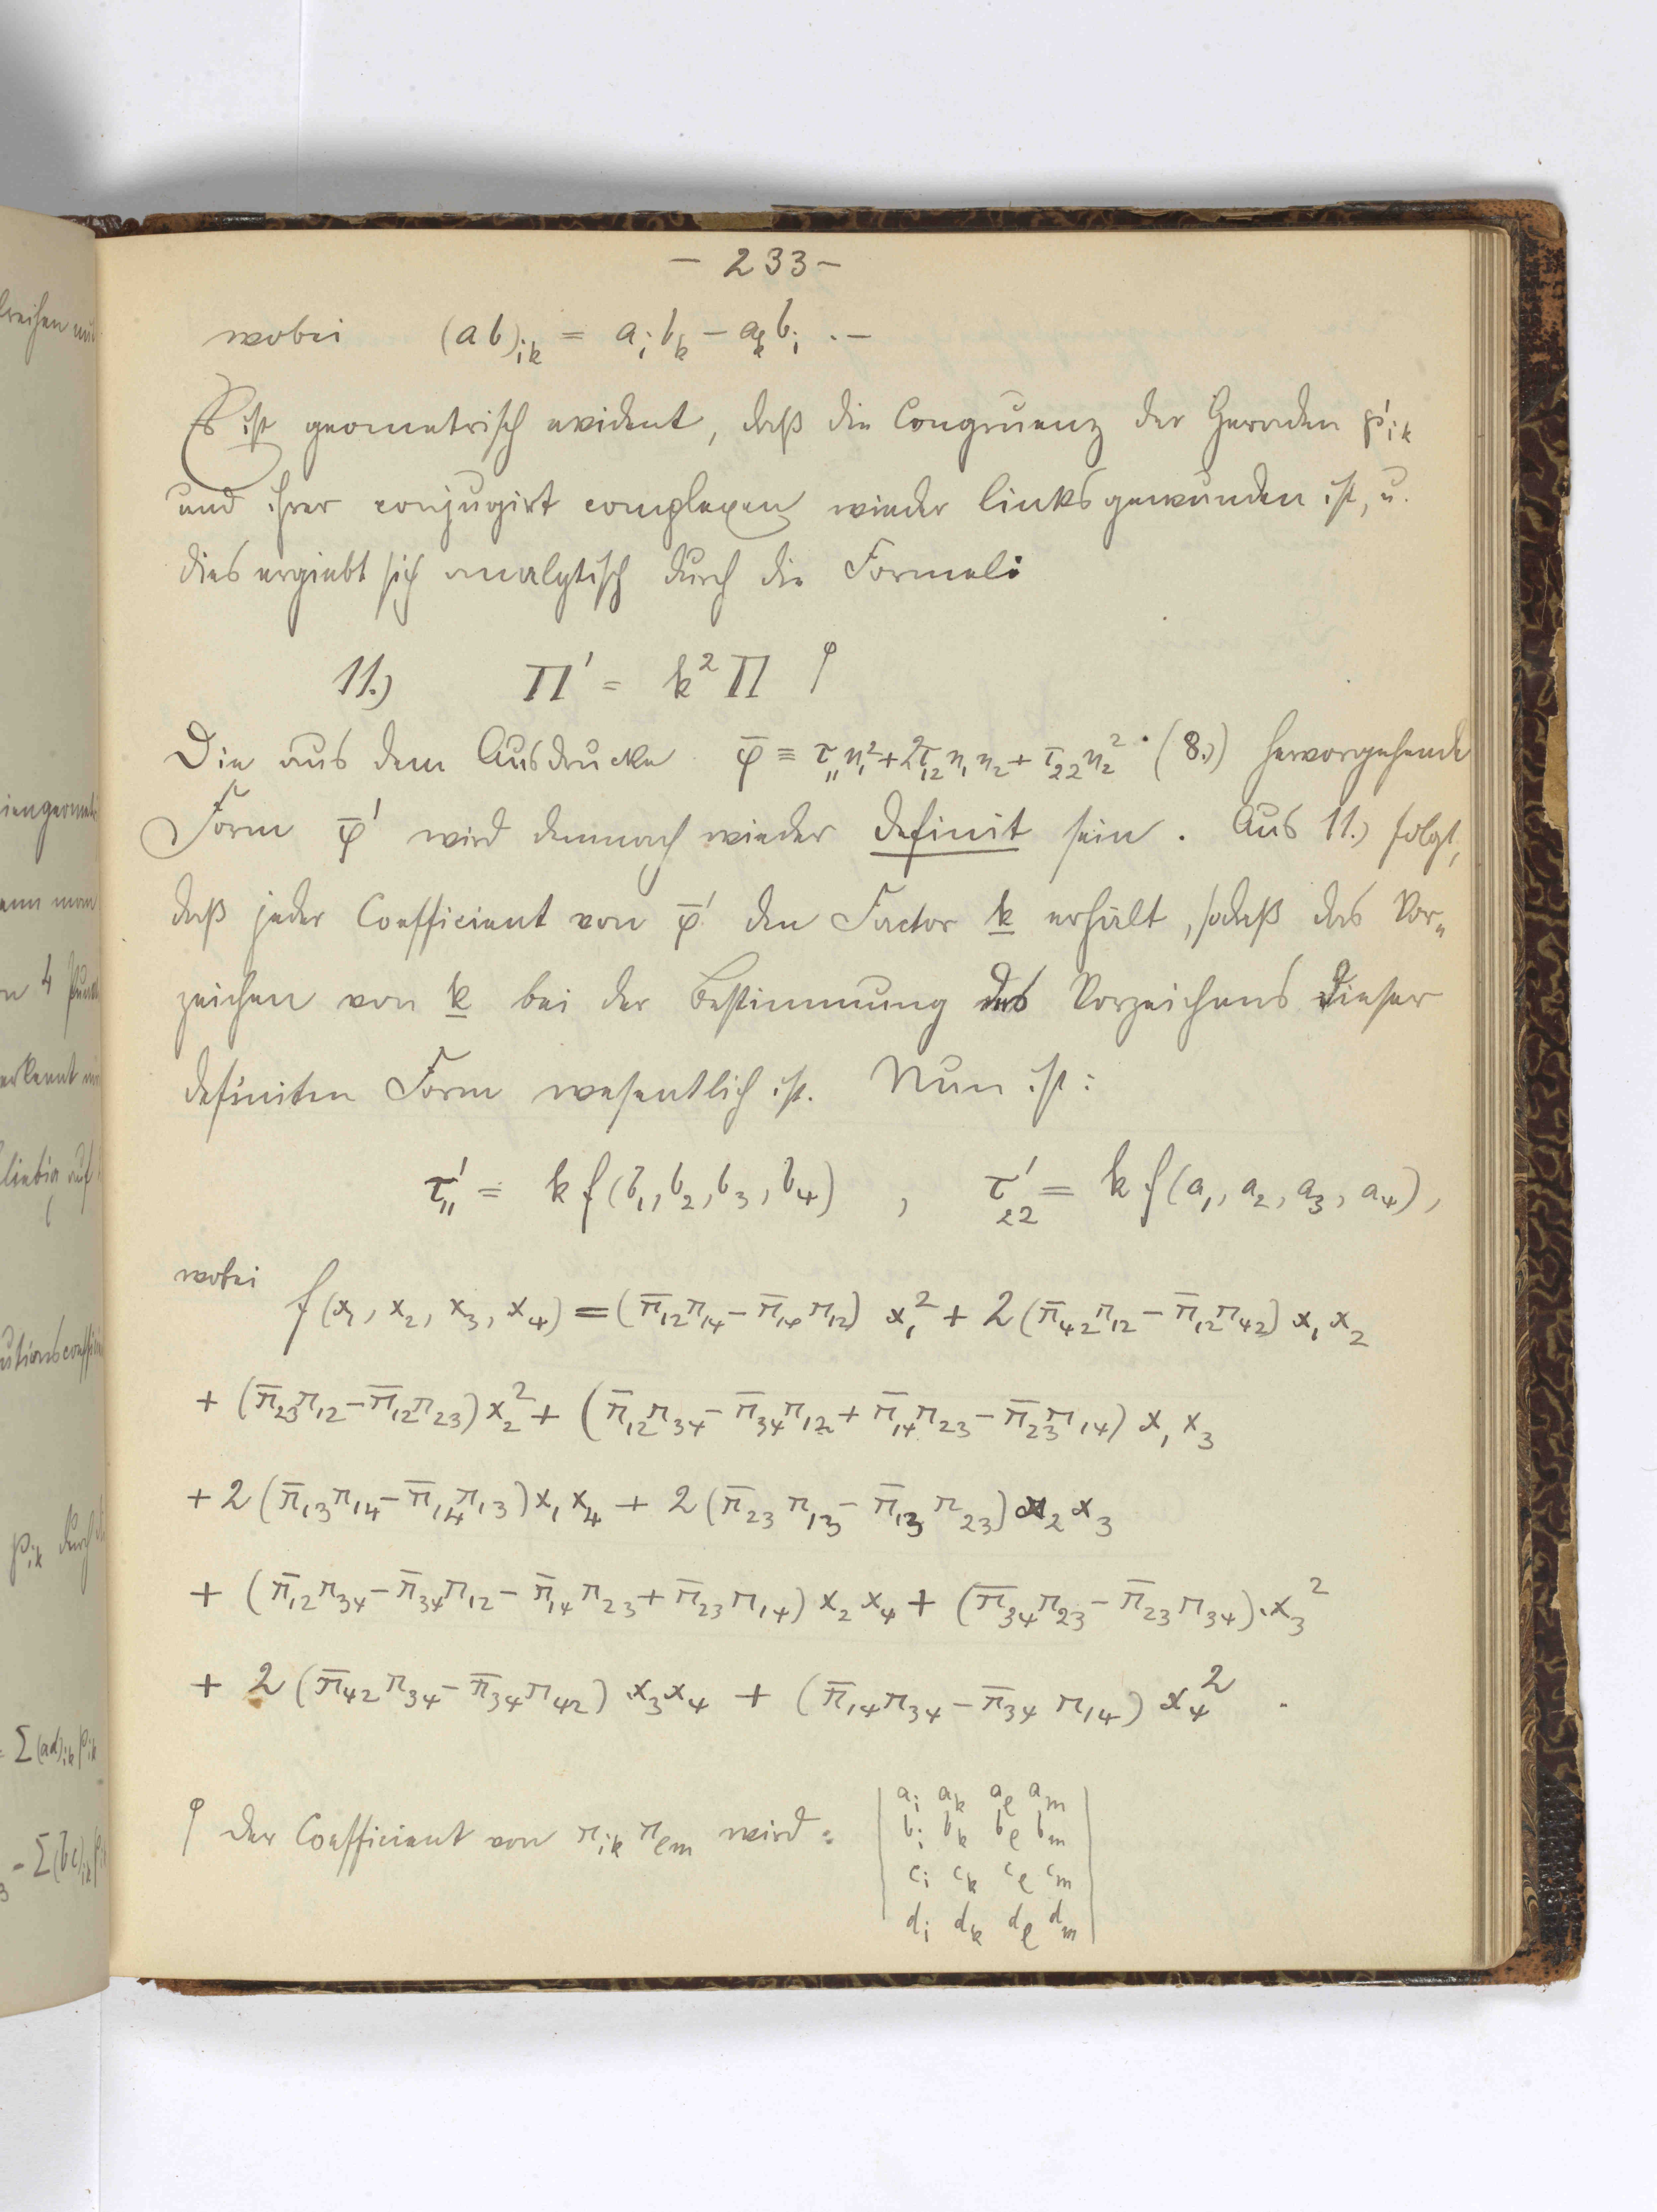 - 233 -
wobei (ab)ik = ai bk - ak bi . -
Es ist geometrisch evident, daß die Congruenz der Geraden p'ik
und ihrer conjugirt complexen wieder linksgewunden ist, u.
dies ergiebt sich analytisch durch die Formel:
11.) Π' = k² Π φ
Die aus dem Ausdrucke φ̄ ≡ τ11 η1² + 2τ12 η1 η2 + τ22 η2² (8.) hervorgehende
Form φ̄' wird demnach wieder definit sein. Aus 11.) folgt,
daß jeder Coefficient von φ̄' den Factor k erhält, sodaß das Vor„
zeichen von k bei der Bestimmung des Vorzeichens dieser
definiten Form wesentlich ist. Nun ist:
τ'11 = k f(b1, b2, b3, b4) , τ'22 = k f(a1, a2, a3, a4),
wobei f(x1, x2, x3, x4) = (π̄12 π14 - π̄14 π12) x1² + 2 (π̄42 π12 - π̄12 π42) x1 x2
+ (π̄23 π12 - π̄12 π23) x2² + (π̄12 π34 - π̄34 π12 + π̄14 π23 - π̄23 π14) x1 x3
+ 2 (π̄13 π14 - π̄14 π13) x1 x4 + 2 (π̄23 π13 - π̄13 π23) x2 x3
+ (π̄12 π34 - π̄34 π12 - π̄14 π23 + π̄23 π14) x2 x4 + (π̄34 π23 - π̄23 π34) . x3²
+ 2 (π̄42 π34 - π̄34 π42) x3 x4 + (π̄14 π34 - π̄34 π14) x4² .
φ Der Coefficient von πik πlm wird:
ai ak al am
bi bk bl bm
ci ck cl cm
di dk dl dm